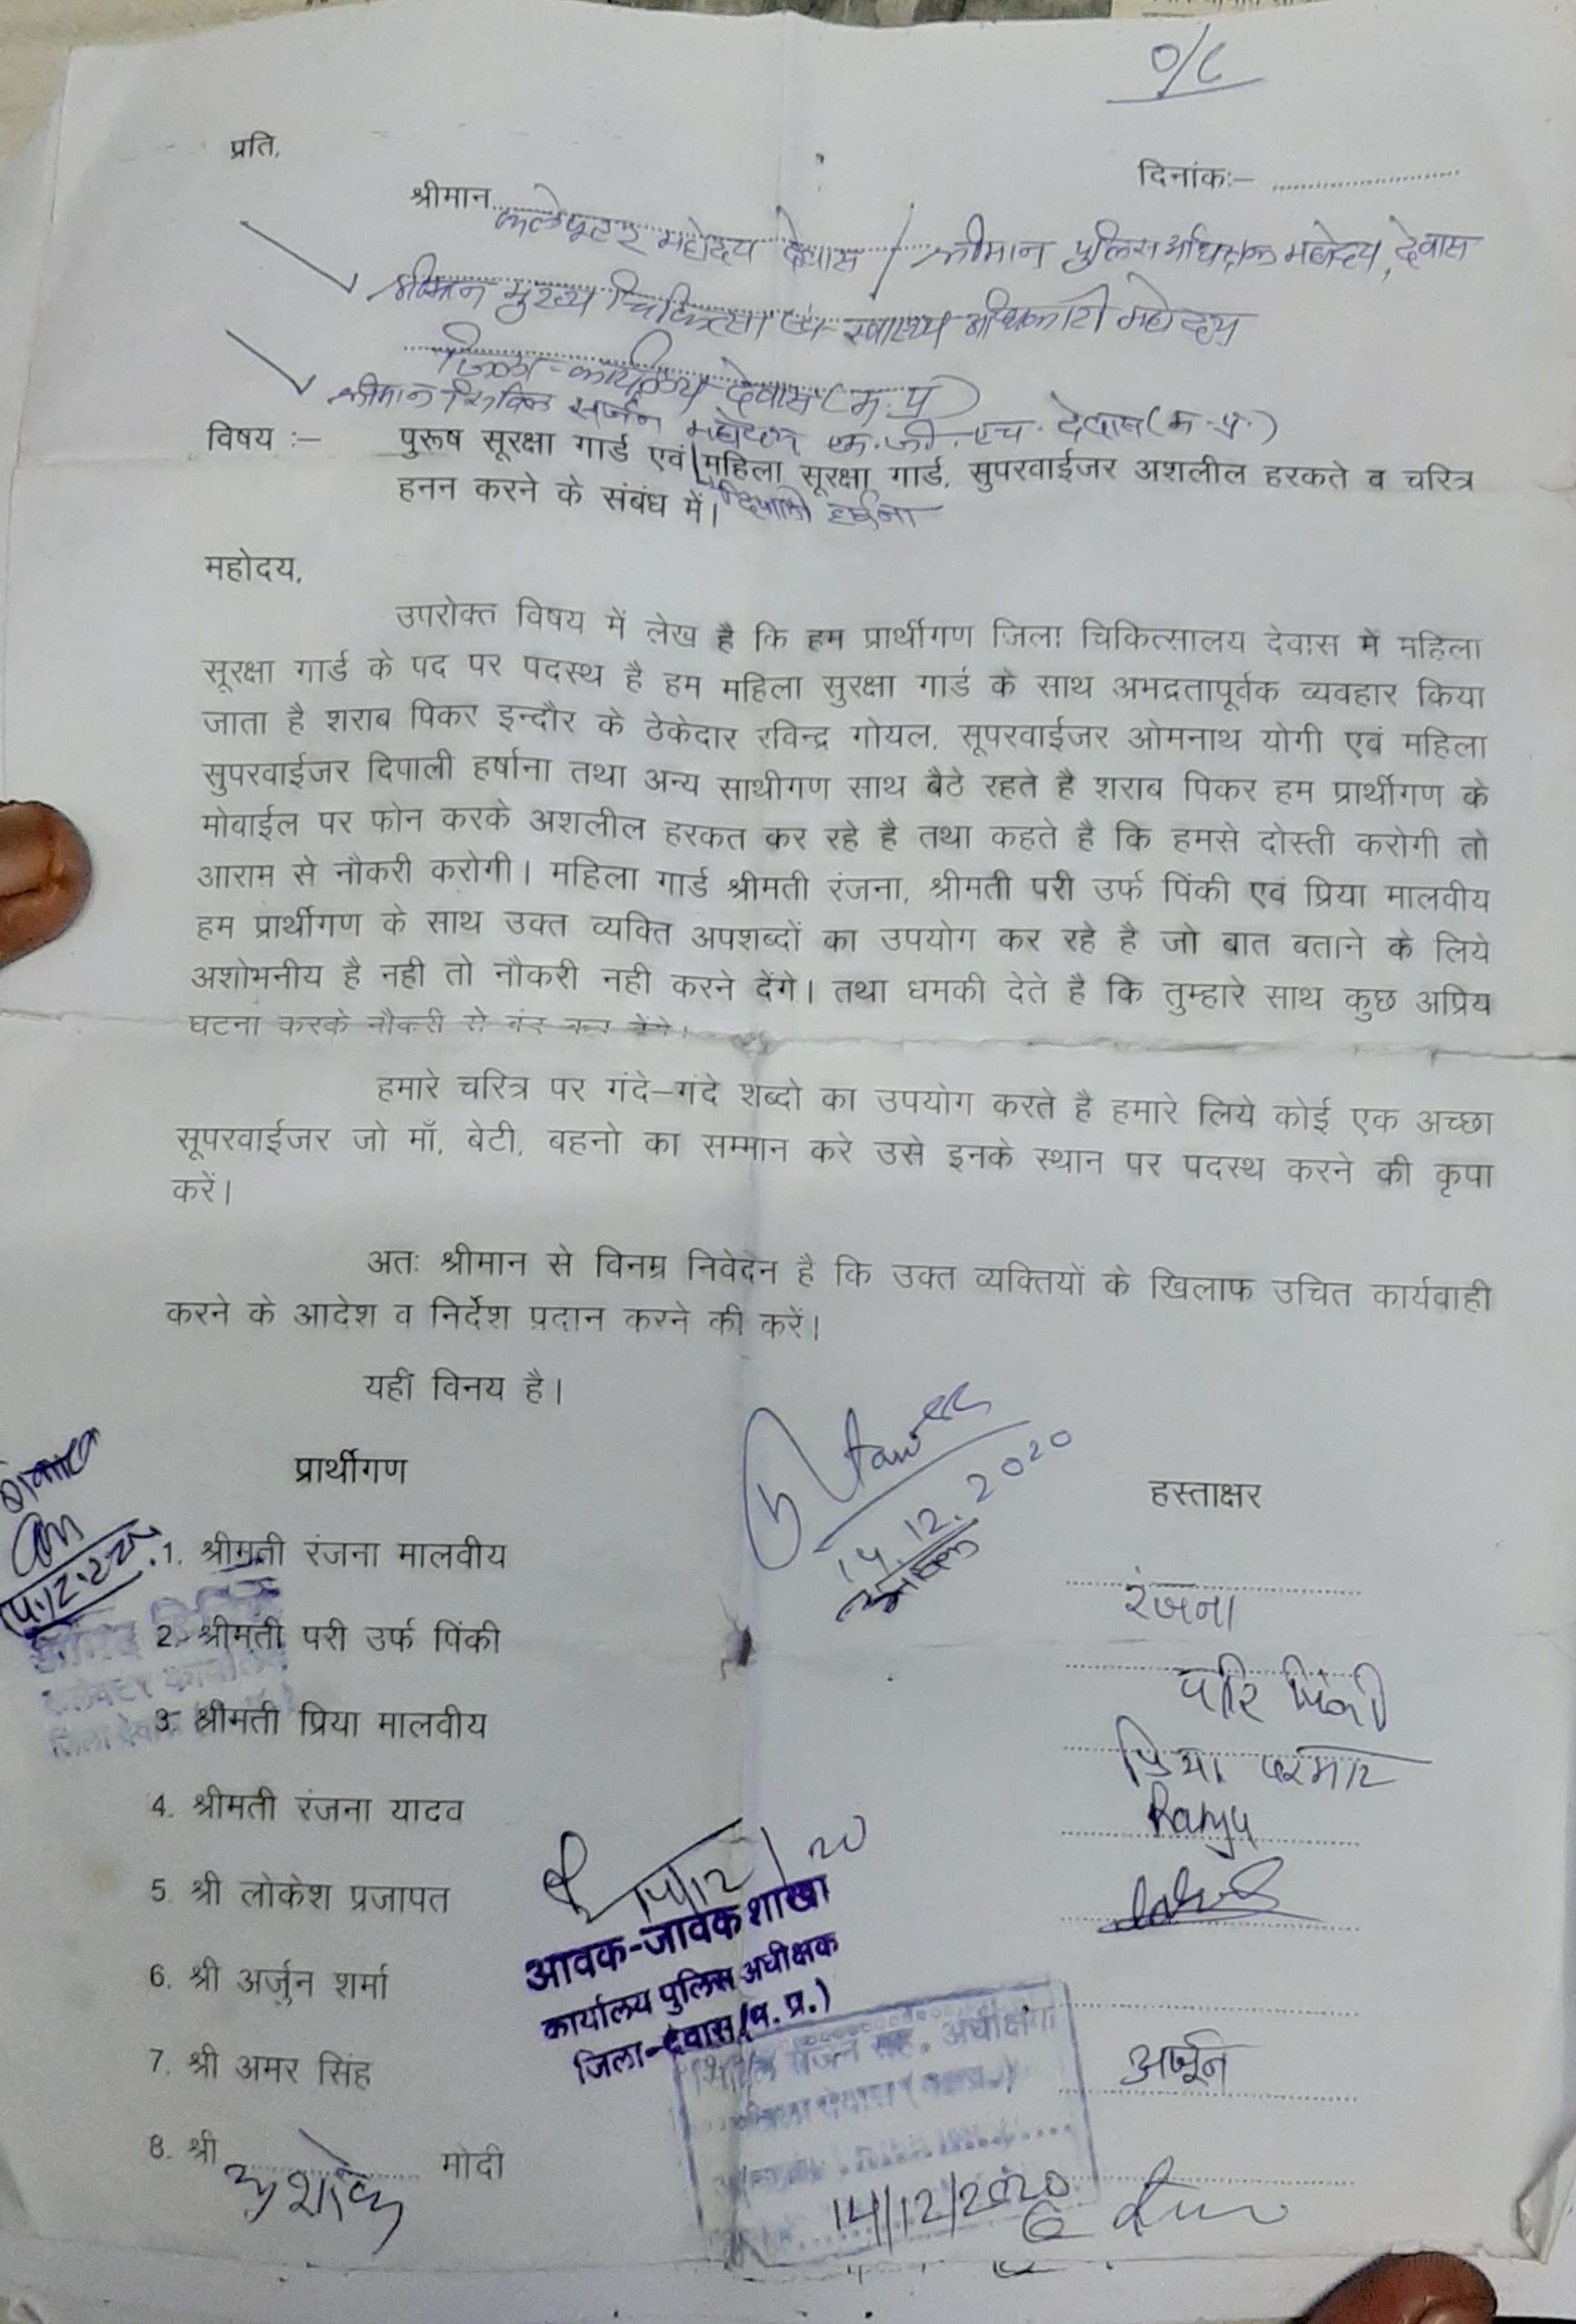 O/C
प्रति,
दिनांक:– ....................
श्रीमान कलेक्टर महोदय देवास / श्रीमान पुलिस अधिक्षक महोदय, देवास
श्रीमान मुख्य चिकित्सा एवं स्वास्थ्य अधिकारी महोदय
जिला-कार्यालय देवास (म.प्र)
श्रीमान सिविल सर्जन महोदय एम.जी.एच. देवास (म.प्र.)
विषय :– पुरूष सूरक्षा गार्ड एवं महिला सूरक्षा गार्ड, सुपरवाईजर अशलील हरकते व चरित्र
हनन करने के संबंध में। दिपाली हर्षाना
महोदय,
उपरोक्त विषय में लेख है कि हम प्रार्थीगण जिला चिकित्सालय देवास में महिला
सूरक्षा गार्ड के पद पर पदस्थ है हम महिला सुरक्षा गार्ड के साथ अभद्रतापूर्वक व्यवहार किया
जाता है शराब पिकर इन्दौर के ठेकेदार रविन्द्र गोयल, सूपरवाईजर ओमनाथ योगी एवं महिला
सुपरवाईजर दिपाली हर्षाना तथा अन्य साथीगण साथ बैठे रहते है शराब पिकर हम प्रार्थीगण के
मोवाईल पर फोन करके अशलील हरकत कर रहे है तथा कहते है कि हमसे दोस्ती करोगी तो
आराम से नौकरी करोगी। महिला गार्ड श्रीमती रंजना, श्रीमती परी उर्फ पिंकी एवं प्रिया मालवीय
हम प्रार्थीगण के साथ उक्त व्यक्ति अपशब्दों का उपयोग कर रहे है जो बात बताने के लिये
अशोभनीय है नही तो नौकरी नही करने देंगे। तथा धमकी देते है कि तुम्हारे साथ कुछ अप्रिय
घटना करके नौकरी से बंद कर देंगे।
हमारे चरित्र पर गंदे–गंदे शब्दो का उपयोग करते है हमारे लिये कोई एक अच्छा
सूपरवाईजर जो माँ, बेटी, बहनो का सम्मान करे उसे इनके स्थान पर पदस्थ करने की कृपा
करें।
अतः श्रीमान से विनम्र निवेदन है कि उक्त व्यक्तियों के खिलाफ उचित कार्यवाही
करने के आदेश व निर्देश प्रदान करने की करें।
यही विनय है।
14.12.2020
आवक
प्रार्थीगण
हस्ताक्षर
1. श्रीमती रंजना मालवीय
रंजना
2. श्रीमती परी उर्फ पिंकी
परि पिंकी
3. श्रीमती प्रिया मालवीय
प्रिया परमार
4. श्रीमती रंजना यादव
5. श्री लोकेश प्रजापत
14/12/20
आवक-जावक शाखा
कार्यालय पुलिस अधीक्षक
जिला-देवास (म. प्र.)
6. श्री अर्जुन शर्मा
7. श्री अमर सिंह
अर्जून
8. श्री अशोक मोदी
14/12/2020